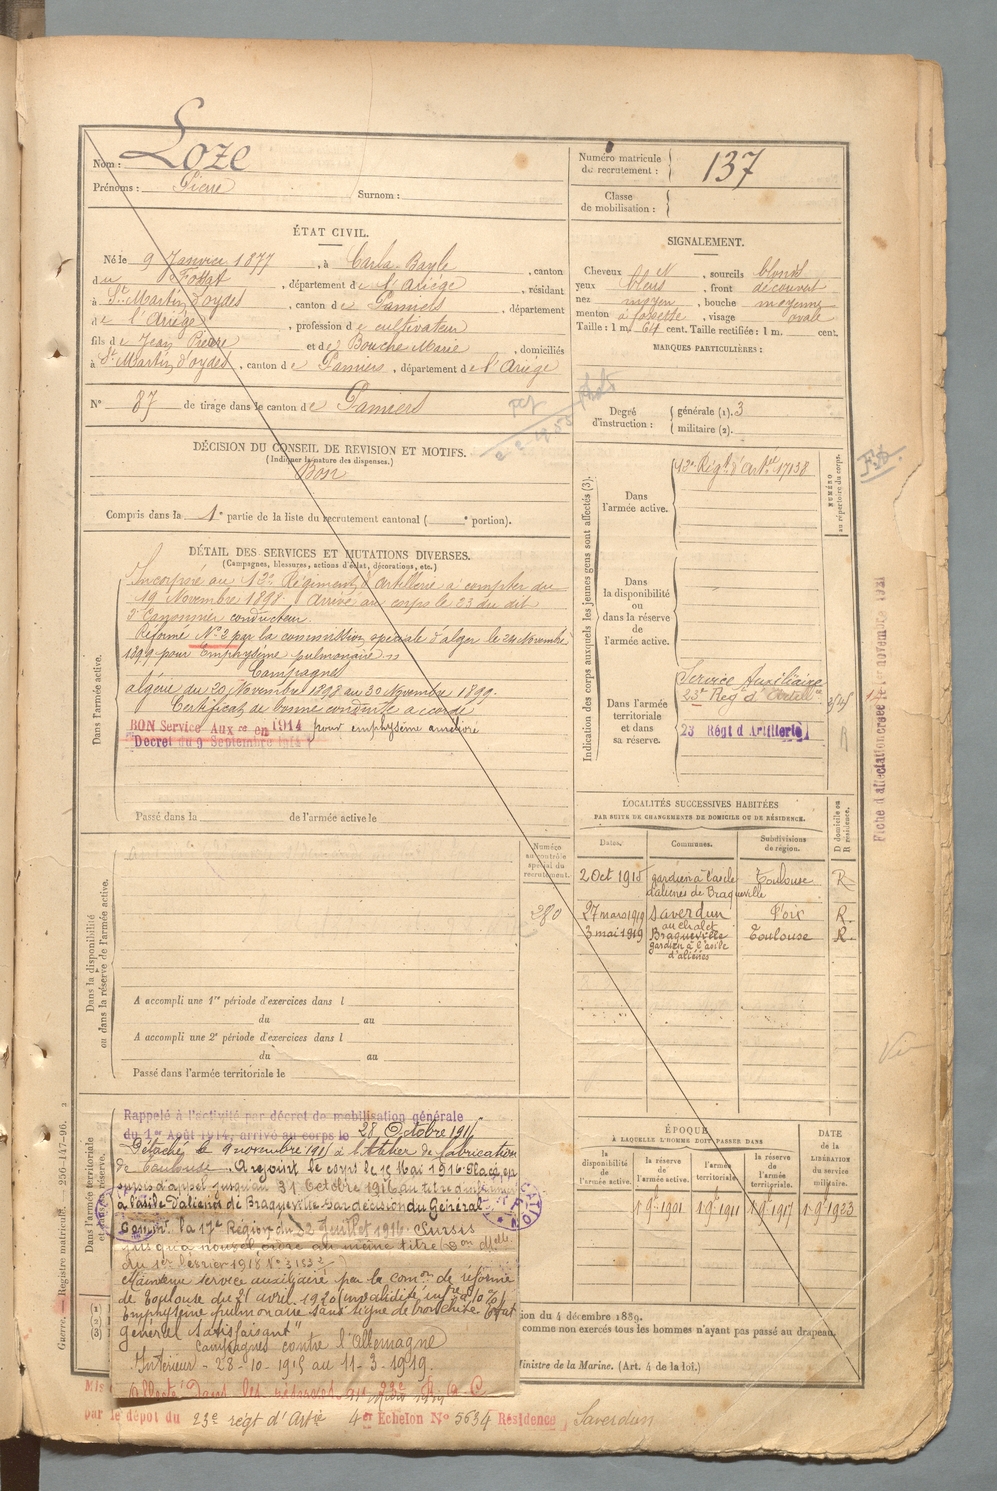 Nom : Loze
Prénoms : Pierre Surnom :
Numéro matricule du recrutement : 137
Classe de mobilisation :
ÉTAT CIVIL.
Né le 9 Janvier 1877, à Carla-Bayle, canton
du Fossat, département de l'Ariège, résidant
à St Martin d'oydes, canton de Pamiers, département
de l'Ariège, profession de cultivateur
fils de Jean Pierre et de Bouche Marie, domiciliés
à St Martin d'oydes, canton de Pamiers, département de l'Ariège
N° 87 de tirage dans le canton de Pamiers
SIGNALEMENT.
Cheveux et, sourcils blonds
yeux bleus, front découvert
nez moyen, bouche moyenne
menton à fossette, visage ovale
Taille : 1 m. 64 cent. Taille rectifiée : 1 m. cent.
MARQUES PARTICULIÈRES :
Degré d'instruction : générale (1). 3
militaire (2).
DÉCISION DU CONSEIL DE REVISION ET MOTIFS.
(Indiquer la nature des dispenses.)
Bon
Compris dans la 1e partie de la liste du recrutement cantonal ( e portion).
DÉTAIL DES SERVICES ET MUTATIONS DIVERSES.
(Campagnes, blessures, actions d'éclat, décorations, etc.)
Dans l'armée active.
Incorporé au 12e Régiment d'Artillerie à compter du
19 Novembre 1898. Arrivé au corps le 23 du dit
2e Canonnier conducteur.
Réformé N°2 par la commission spéciale d'alger le 24 Novembre
1899 pour Emphysème pulmonaire
Campagnes
algérie du 20 Novembre 1898 au 30 Novembre 1899.
Certificat de bonne conduite accordé
BON Service Auxre en 1914 pour emphysème amélioré
Décret du 9 Septembre 1914
Passé dans la de l'armée active le
Indication des corps auxquels les jeunes gens sont affectés (3).
NUMÉRO au répertoire du corps.
Dans l'armée active.
12e Régt d'Artie 17138
Dans la disponibilité ou dans la réserve de l'armée active.
Dans l'armée territoriale et dans sa réserve.
Service Auxiliaire
23e Régt d'Artillie
23 Régt d'Artillerie
Fiche d'affectation créée le 1er novembre 1921
LOCALITÉS SUCCESSIVES HABITÉES
PAR SUITE DE CHANGEMENTS DE DOMICILE OU DE RÉSIDENCE.
Dates. Communes. Subdivisions de région. D domicile ou R résidence.
2 Oct 1915 gardien à l'asile d'aliénés de Braqueville Toulouse R
27 mars 1919 Saverdun au chalet Foix R.
3 mai 1919 Braqueville gardien à l'asile d'aliénés Toulouse R.
Dans la disponibilité ou dans la réserve de l'armée active.
Numéro au contrôle spécial du recrutement.
280
A accompli une 1re période d'exercices dans l
du au
A accompli une 2e période d'exercices dans l
du au
Passé dans l'armée territoriale le
Dans l'armée territoriale et dans sa réserve.
Rappelé à l'activité par décret de mobilisation générale
du 1er Août 1914, arrivé au corps le 28 Octobre 1915
Détaché le 9 novembre 1915 à l'Atelier de fabrication
de Toulouse. A rejoint le corps le 15 Mai 1916. Placé en
sursis d'appel jusqu'au 31 Octobre 1916 au titre d'infirmier
à l'asile d'aliénés de Braqueville par décision du Général
Commt la 17e Région du 22 Juillet 1916. Sursis
jusqu'à nouvel ordre au même titre
du 1er février 1918 N° 3153
Maintenu service auxiliaire par la comon de réforme
de Toulouse du 21 avril 1920 invalidité infre à 10 %
Emphysème pulmonaire sans signe de bronchite Etat
général satisfaisant"
Campagnes contre l'Allemagne
Intérieur - 28-10-1915 au 11-3-1919.
par le dépot du 23e régt d'Artie 4er Echelon N° 5634 Résidence Saverdun
ÉPOQUE
À LAQUELLE L'HOMME DOIT PASSER DANS
la disponibilité de l'armée active. la réserve de l'armée active. l'armée territoriale. la réserve de l'armée territoriale.
DATE de la LIBÉRATION du service militaire.
1 9re 1901 1 9re 1911 1 9re 1917 1 9re 1923
ion du 4 décembre 1889.
comme non exercés tous les hommes n'ayant pas passé au drapeau.
Ministre de la Marine. (Art. 4 de la loi.)
Guerre. — Registre matricule. 256-147-96.